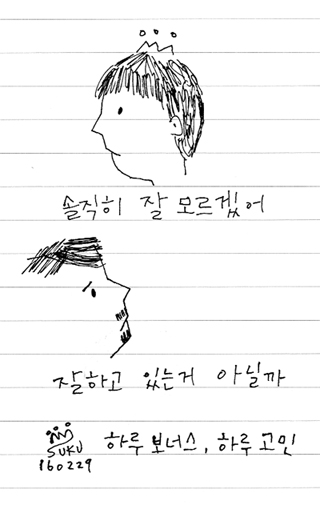 솔직히 잘 모르겠어
잘하고 있는거 아닐까
하루 보너스, 하루 고민
SUKU
160229